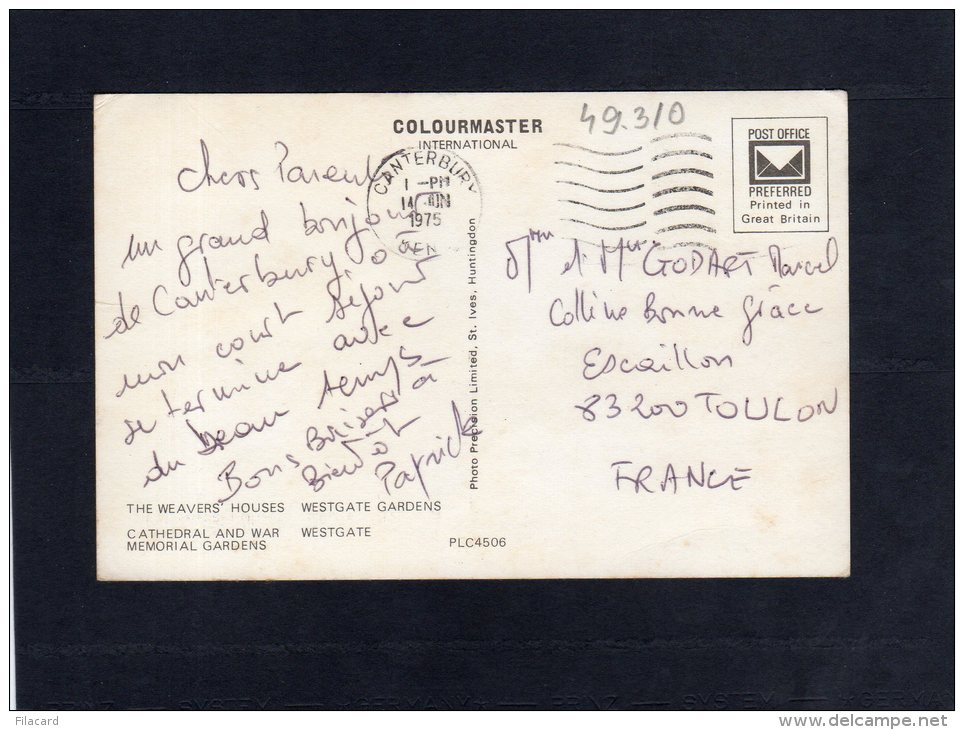 COLOURMASTER
INTERNATIONAL
49.310
POST OFFICE
PREFERRED
Printed in
Great Britain
CANTERBURY
1 -PM
14 JUN
1975
KENT
Chers Parents
un grand bonjour
de Canterbury, où
mon court séjour
se termine avec
du beau temps
Bons Baisers à
Bientôt
Patrick
Photo Precision Limited, St. Ives, Huntingdon
Mme et Mr GODART Marcel
Colline Bonne grâce
Escaillon
83200 TOULON
FRANCE
THE WEAVERS' HOUSES WESTGATE GARDENS
CATHEDRAL AND WAR WESTGATE
MEMORIAL GARDENS
PLC4506
PRINZ — SYSTEM — GERMANY — PRINZ — SYSTEM — GERMAN
Filacard
www.delcampe.net